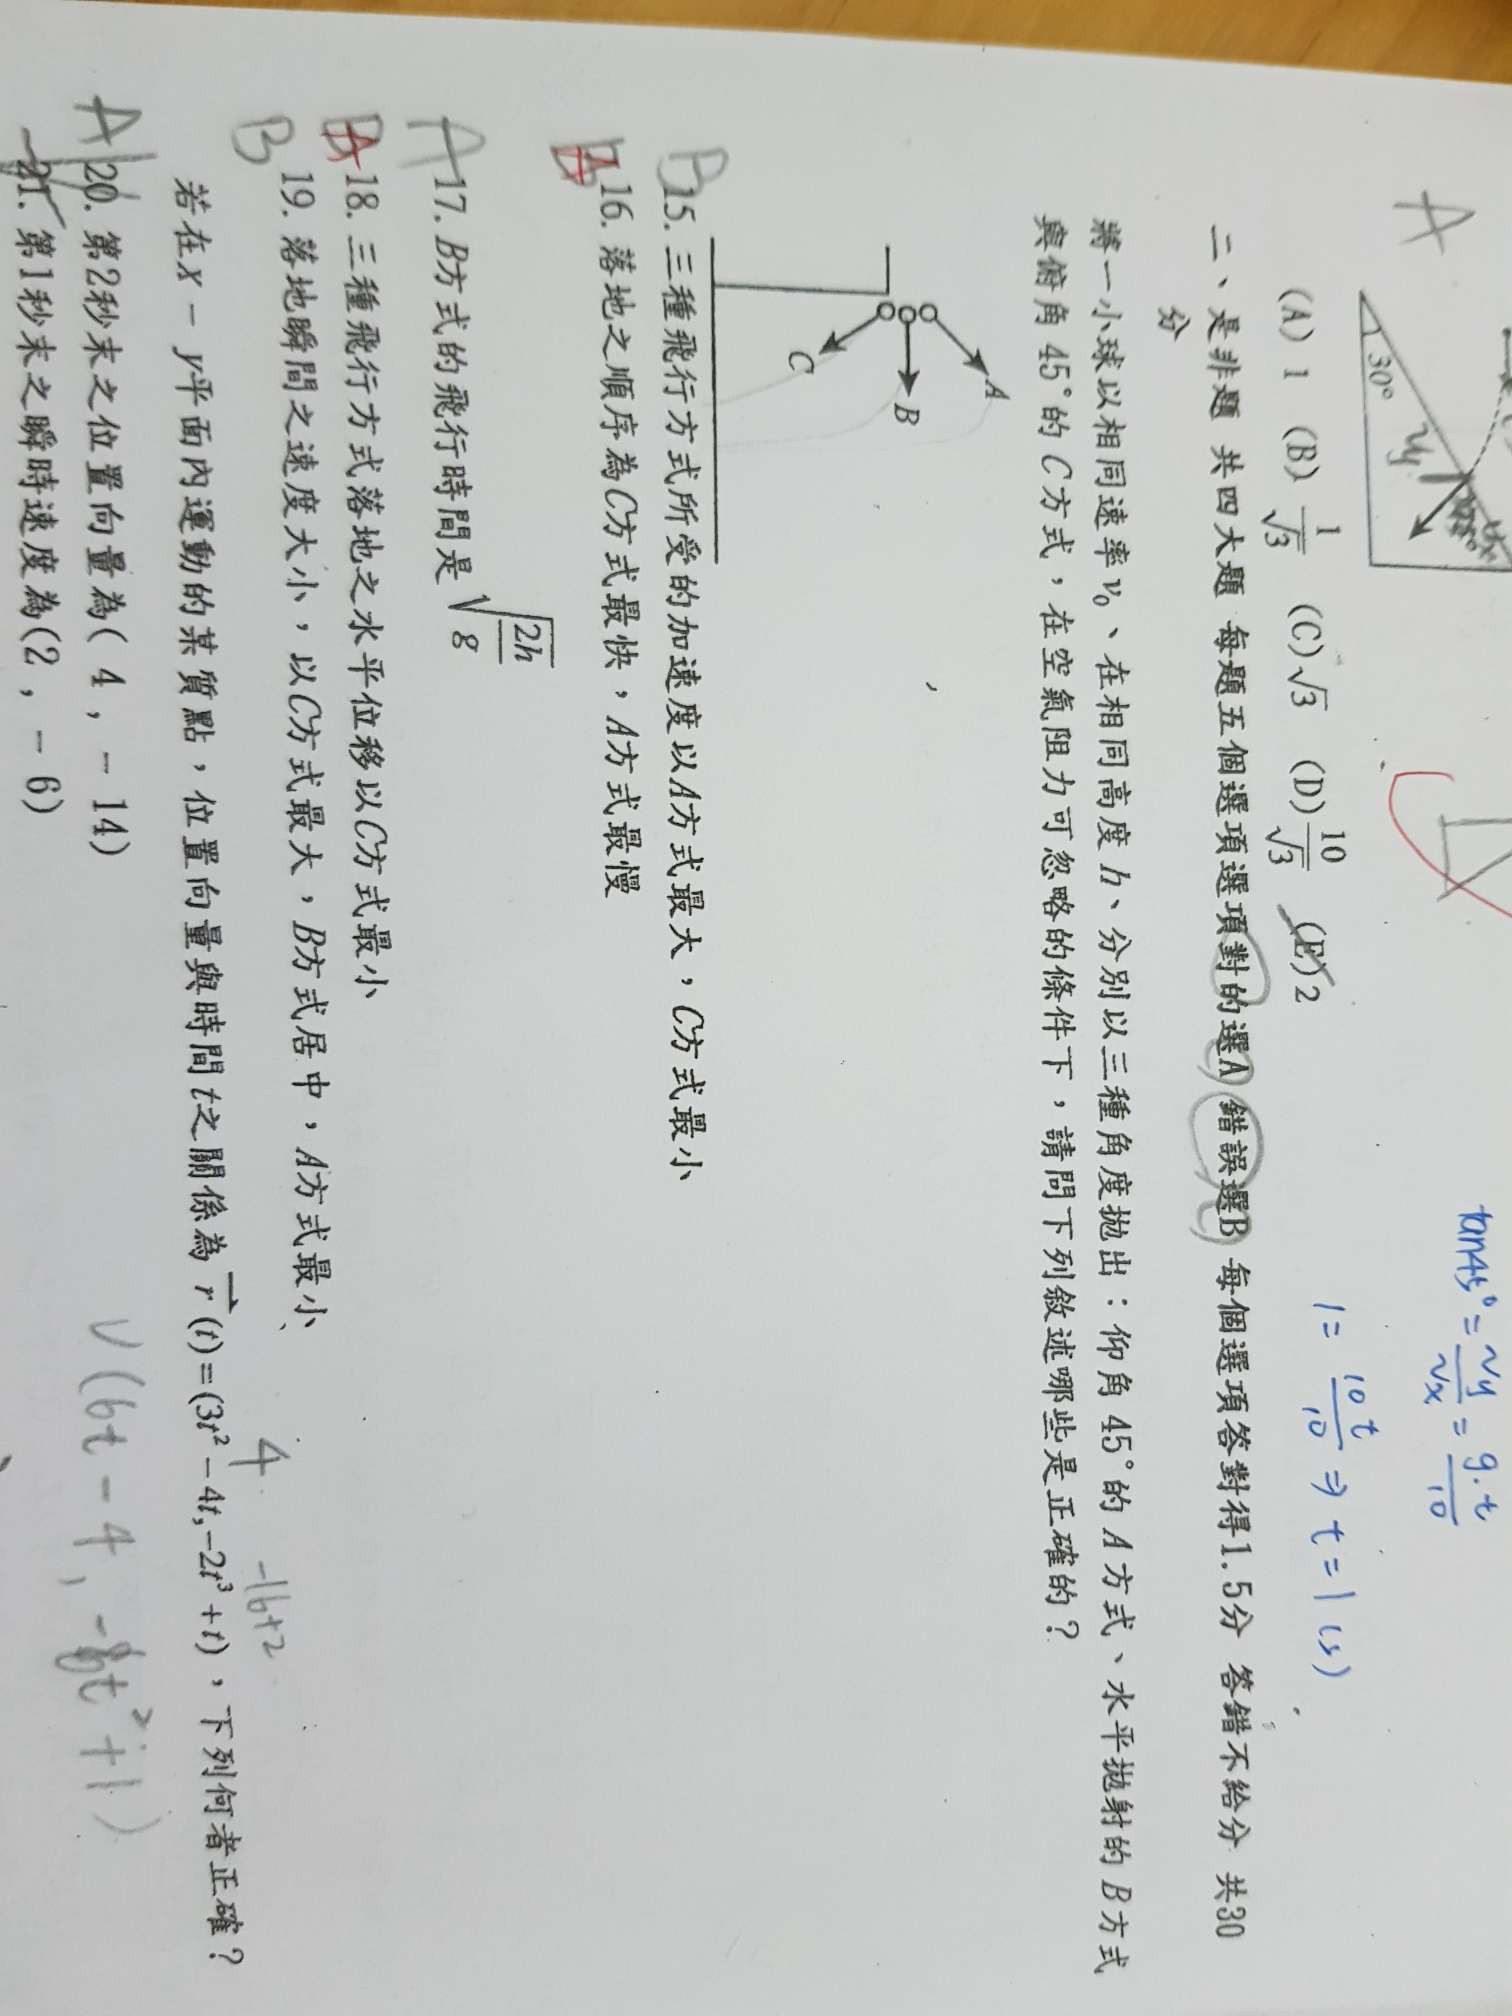 tan45°=vy/vx=g.t/10
1=10t/10⇒t=1(s)
A
30°
vy
(A) 1 (B) 1/√3 (C)√3 (D)10/√3 (E)2
二、是非題 共四大題 每題五個選項選項對的選A 錯誤選B 每個選項答對得1.5分 答錯不給分 共30
分
將一小球以相同速率v₀、在相同高度h、分別以三種角度拋出：仰角45°的A方式、水平拋射的B方式
與俯角45°的C方式，在空氣阻力可忽略的條件下，請問下列敘述哪些是正確的？
A
B
C
B 15. 三種飛行方式所受的加速度以A方式最大，C方式最小
A 16. 落地之順序為C方式最快，A方式最慢
A 17. B方式的飛行時間是√(2h/g)
A 18. 三種飛行方式落地之水平位移以C方式最小
B 19. 落地瞬間之速度大小，以C方式最大，B方式居中，A方式最小
4 -16+2
若在x－y平面內運動的某質點，位置向量與時間t之關係為r⃗(t)=(3t²－4t,－2t³＋t)，下列何者正確？
A 20. 第2秒末之位置向量為(4，－14)
V(6t-4, -6t²+1)
21. 第1秒末之瞬時速度為(2，－6)